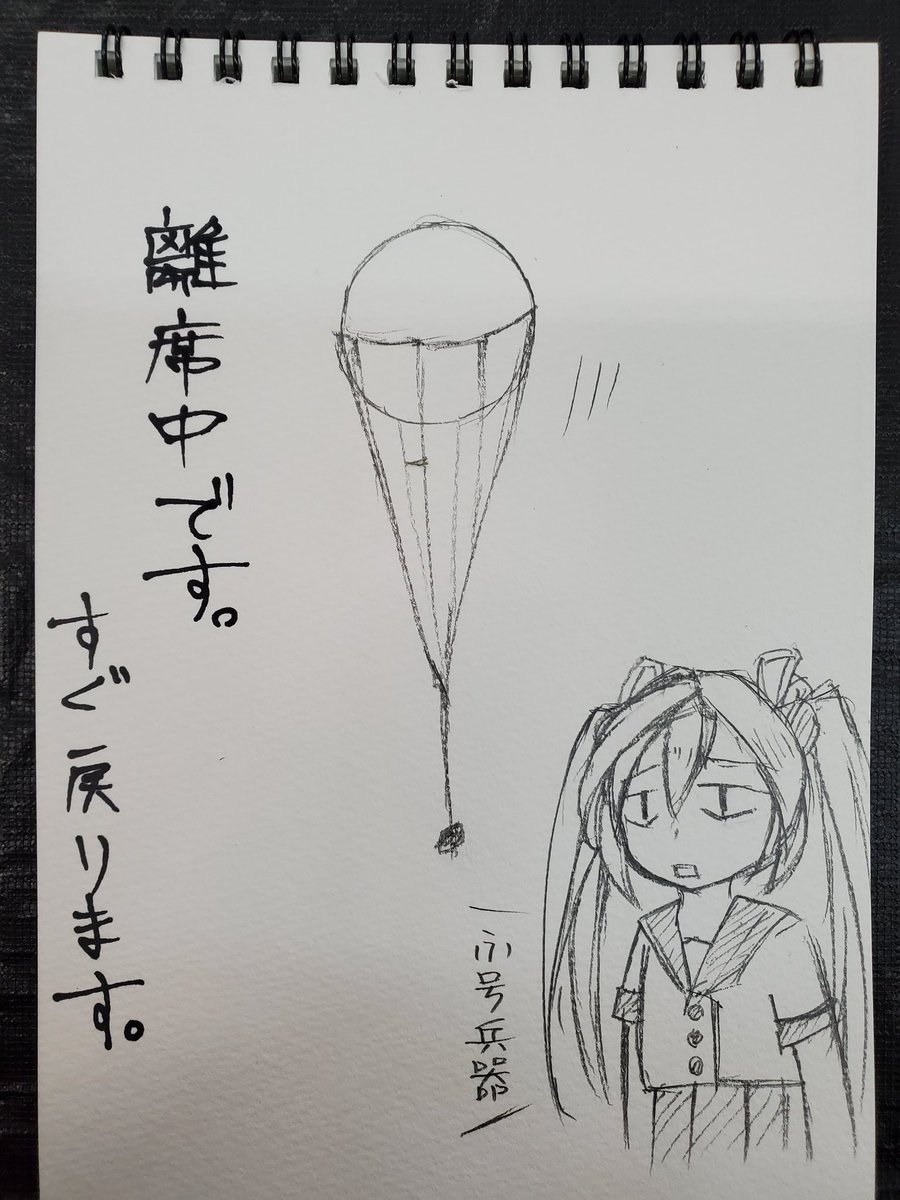 離席中です。
すぐ戻ります。
ふ号兵器